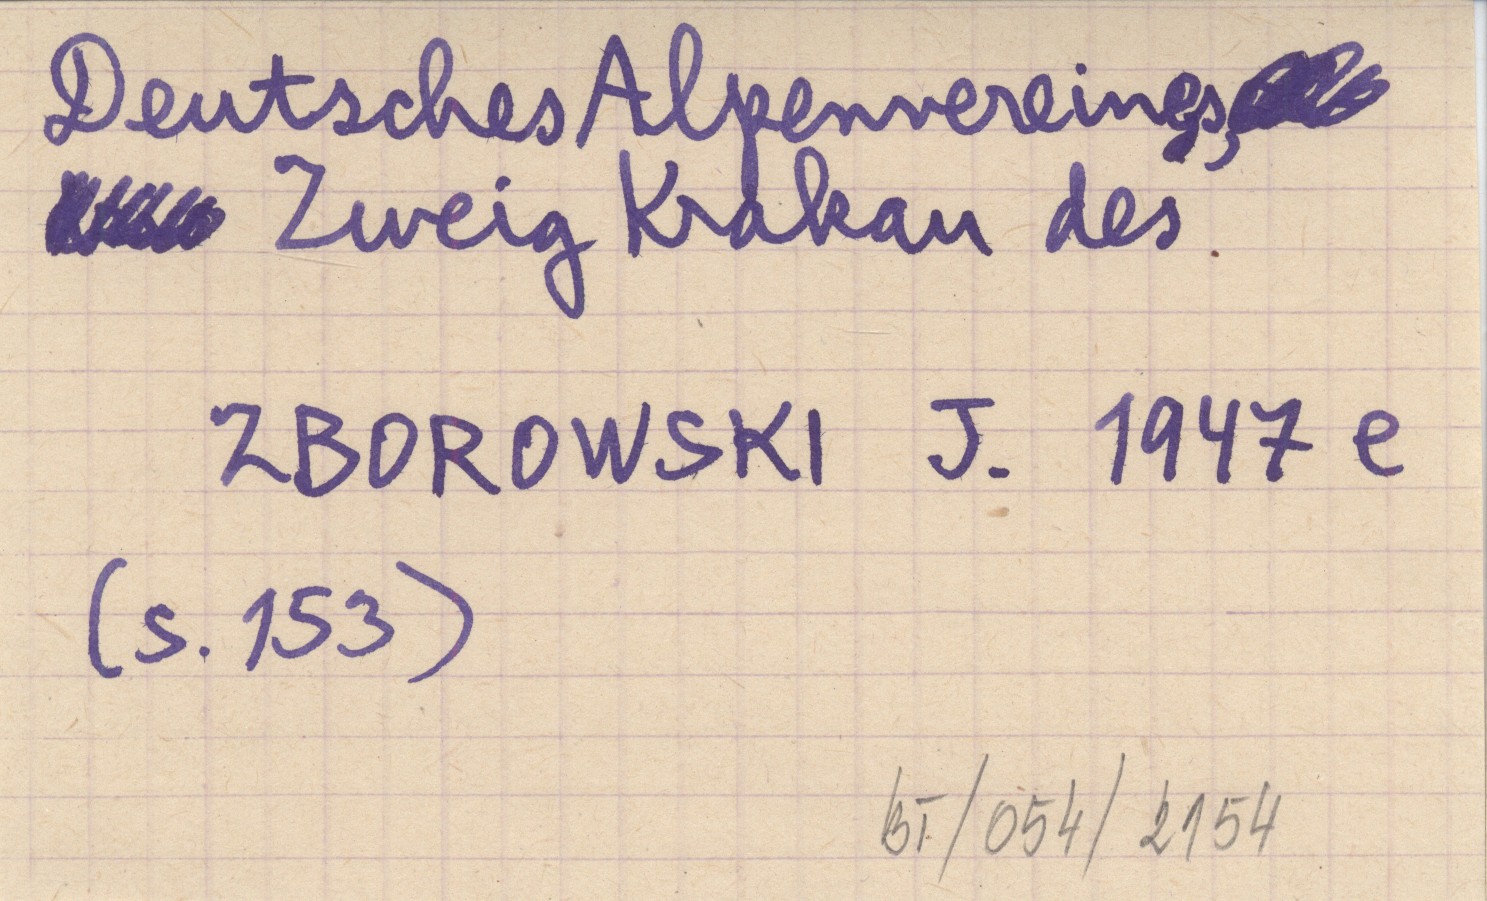 Deutsches Alpenvereines,
Zweig Krakau des
ZBOROWSKI J. 1947 e
(s. 153)
BT/054/2154